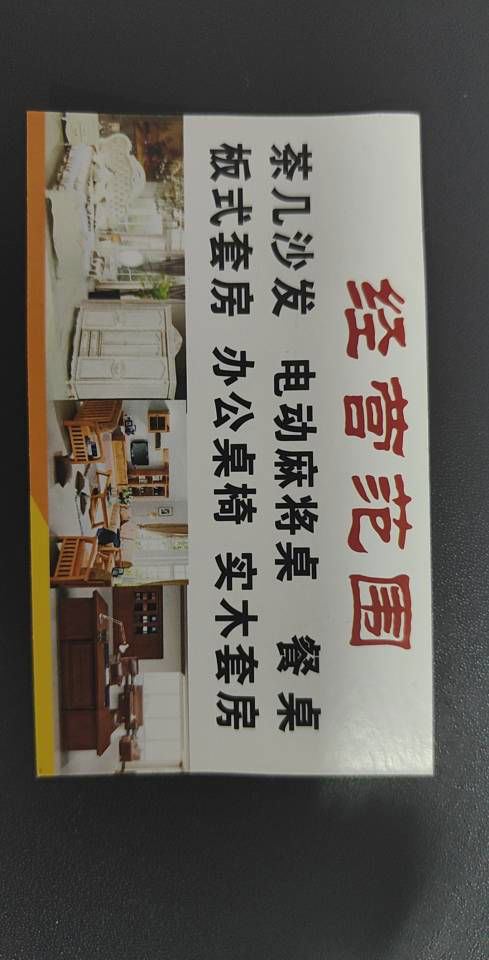 经营范围
茶几沙发 电动麻将桌 餐桌
板式套房 办公桌椅 实木套房